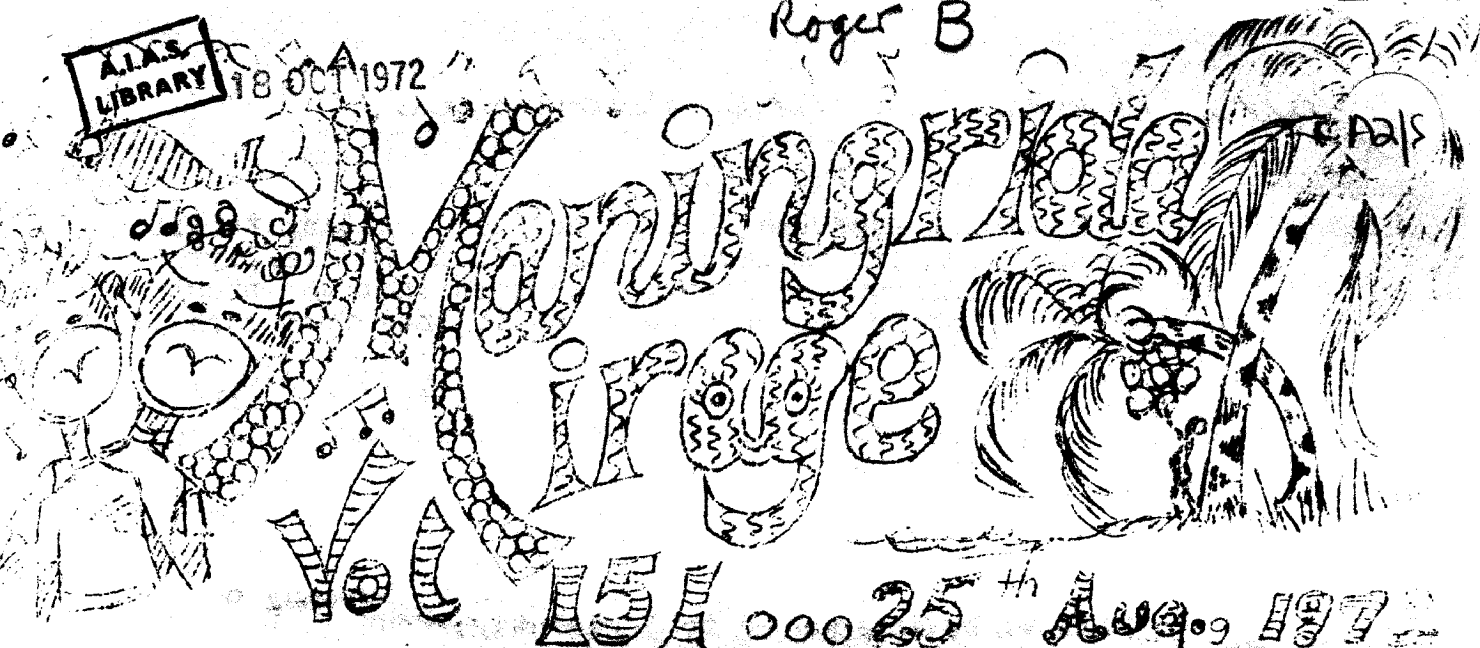 Roger B
A.I.A.S.
LIBRARY
18 OCT 1972
Maningrida
Mirage
Vol 151 ... 25th Aug.,